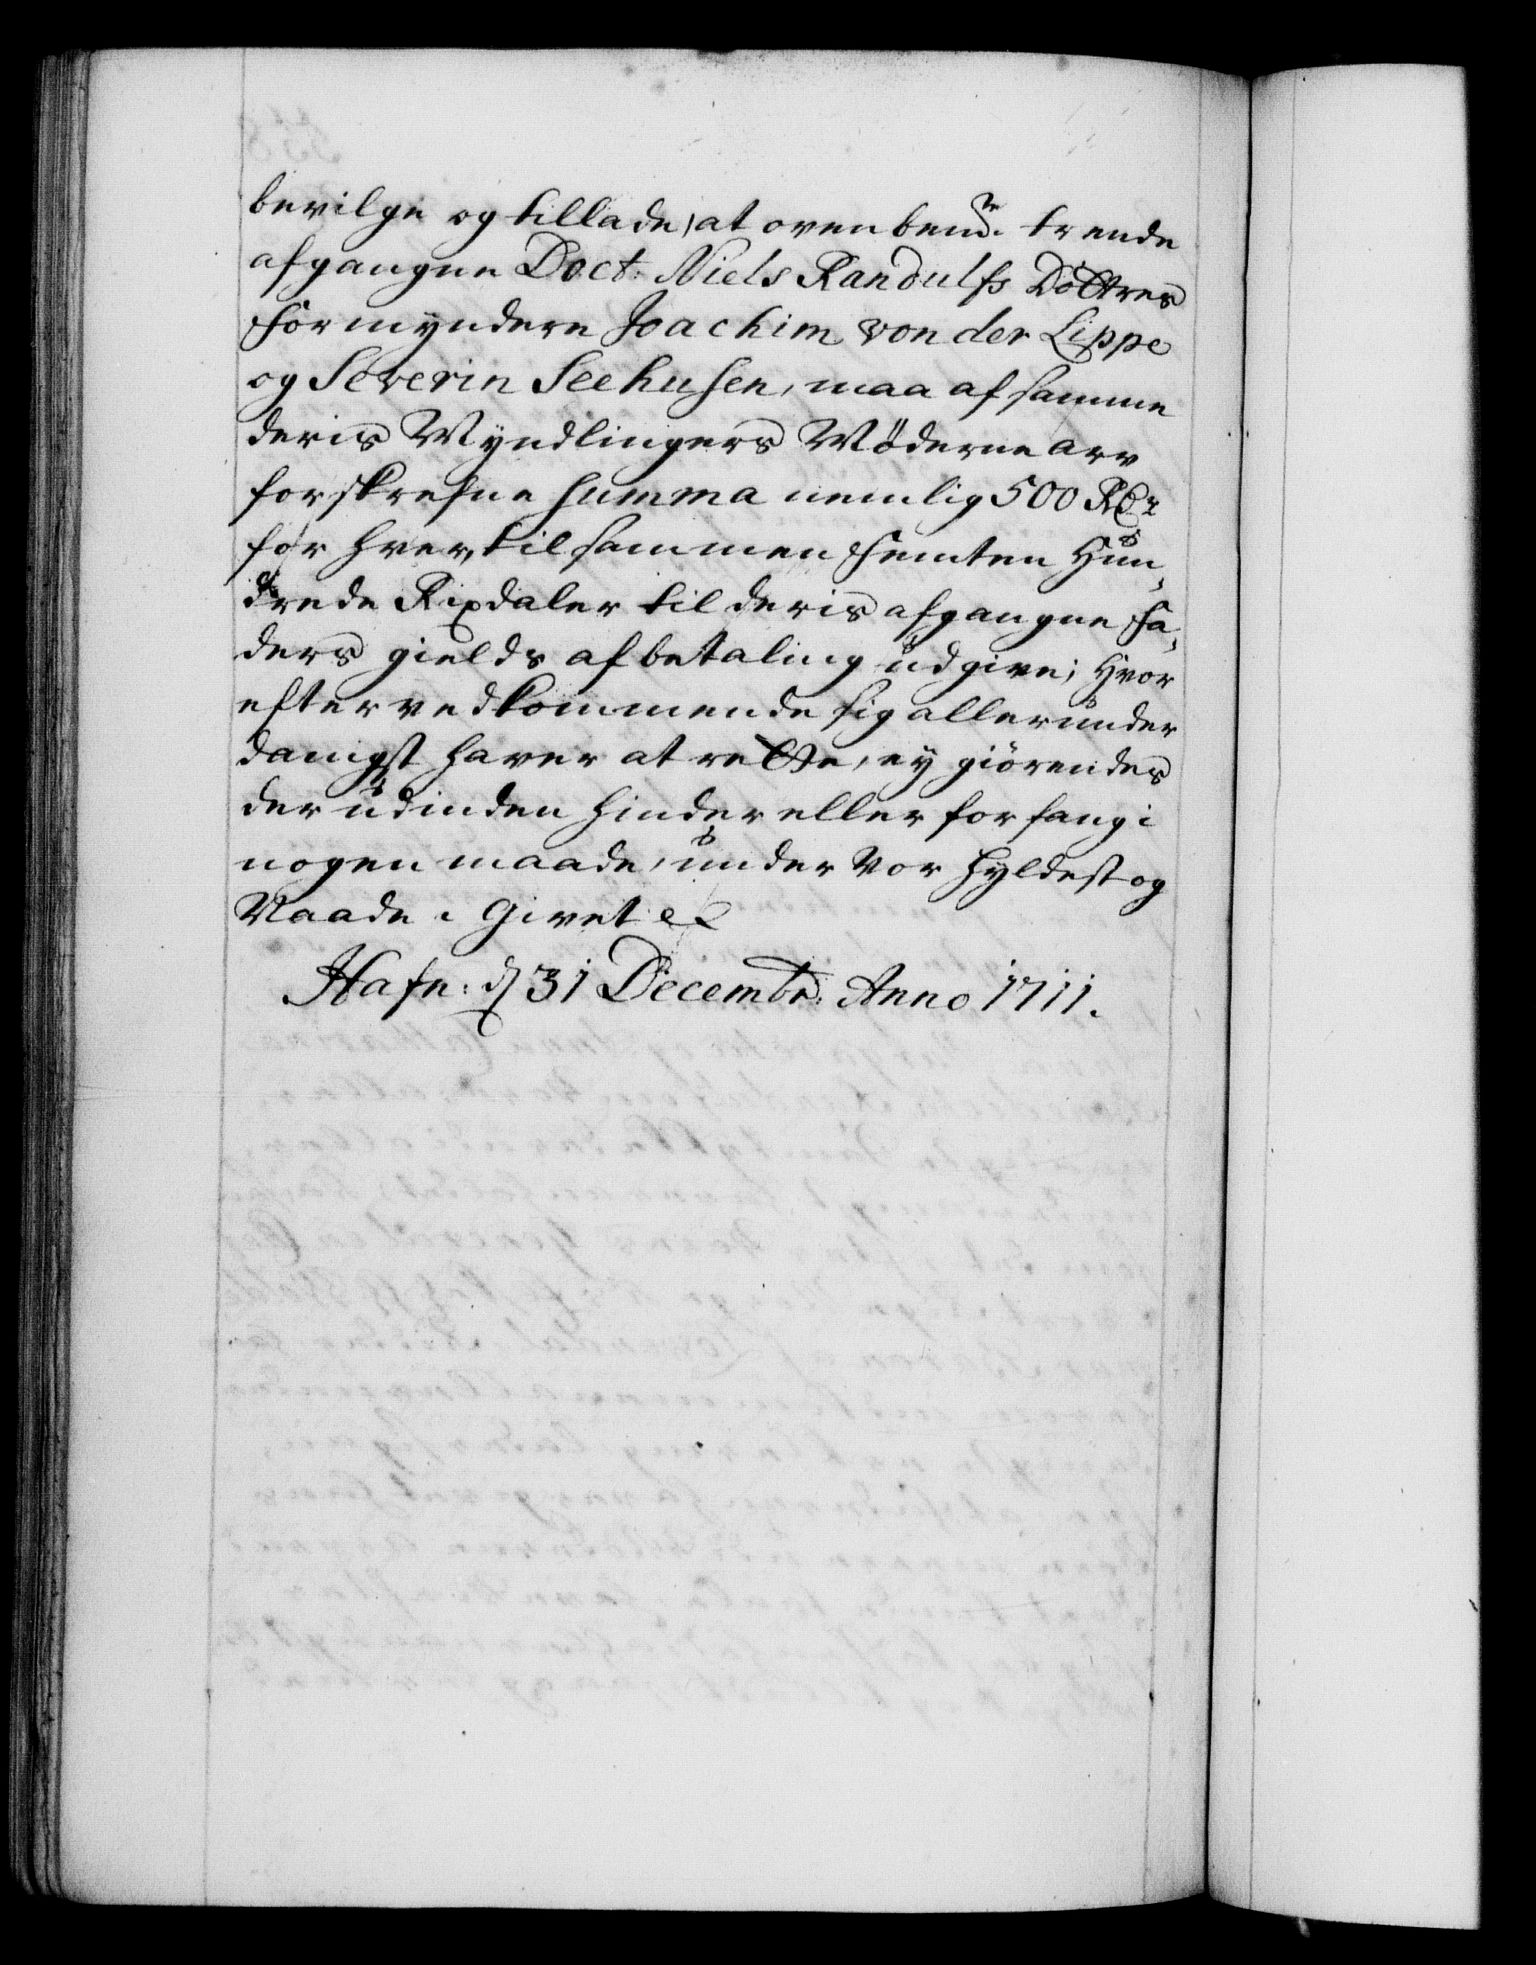 bevilge og tillade, at ovenbemte. trende
afgangne Doct: Niels Randulfs Döttres
Formyndere Joachim von der Lippe
og Severin Seehusen, maa af samme
deris Myndlingers Möderne arv
forskrefne summa nemlig 500 Rdr
for hver, tilsammen Femten Hun,
drede Rixdaler til deris afgangne Fa,
ders gields afbetaling udgive; Hvor
efter vedkommende sig allerunder
danigst haver at rette, ey giörendes
der udinden hinder eller forfang i
nogen maade, under Vor hyldest og
Naade. Givet &c
Hafn: d 31 Decembr: Anno 1711.